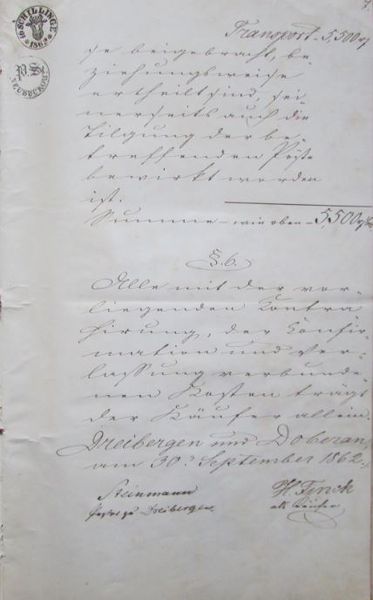 16 SCHILLINGE
1862
P. S.
Transport - 5,500 rℓ
se beigebracht, be-
ziehungsweise
ertheilt sind, sei-
nerseits auch die
Tilgung der be-
treffenden Pöste
bewirkt worden
ist.
Summe - wie oben - 5,500 rℓ
§. 6.
Alle mit der vor-
liegenden Contra-
hirung, der Confir-
mation und Ver-
lassung verbunde-
nen Kosten trägt
der Käufer allein.
Dreibergen und Doberan,
am 30. September 1862.
Steinmann
zu Dreibergen
H Finck
als Käufer